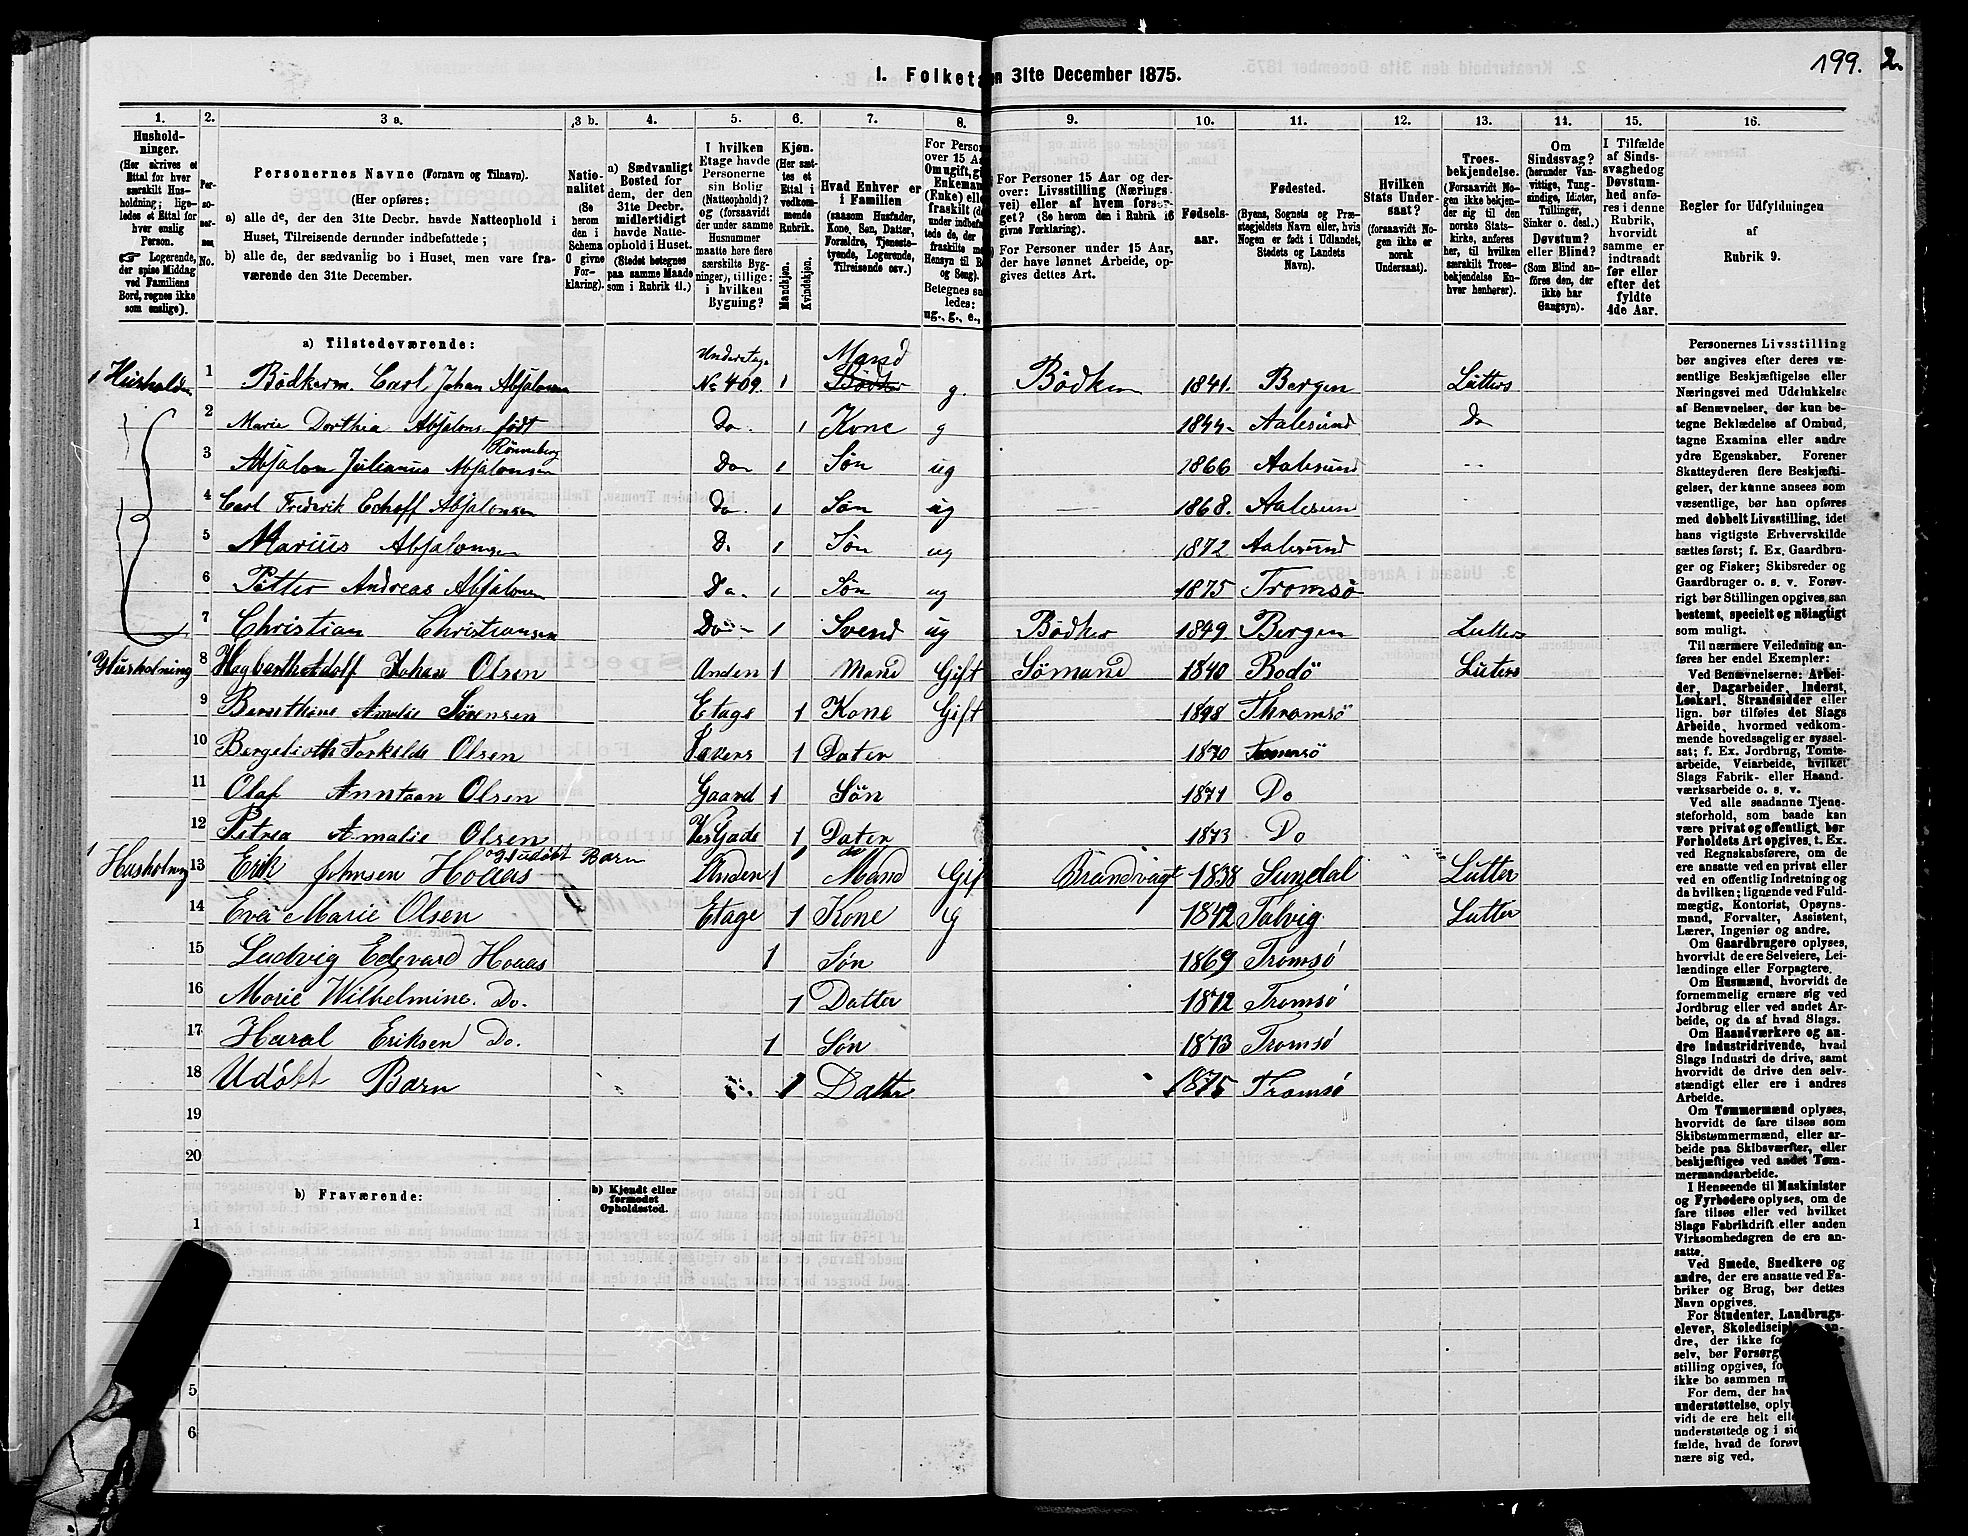 199. 2.
1. Folketæ n 31te December 1875.
1. 2. 3 a. 3 b. 4. 5. 6. 7. 8. 9. 10. 11. 12. 13. 14. 15. 16.
Hushold-
ninger.
(Her skrives et
Ettal for hver
særskilt Hus-
holdning; lige-
ledes et Ettal for
hver enslig
Person.
☞ Logerende,
der spise Middag
ved Familiens
Bord, regnes ikke
som enslige).
Per-
so-
ner-
nes
No.
Personernes Navne (Fornavn og Tilnavn).
(Her opføres:
a) alle de, der den 31te Decbr. havde Natteophold i
Huset, Tilreisende derunder indbefattede;
b) alle de, der sædvanlig bo i Huset, men vare fra-
værende den 31te December.
Natio-
nalitet
(Se
herom
den i
Schema
O givne
For-
klaring).
a) Sædvanligt
Bosted for
dem, der den
31te Decbr.
midlertidigt
havde Natte-
ophold i Huset.
(Stedet betegnes
paa samme Maade
som i Rubrik 11.)
I hvilken
Etage havde
Personerne
sin Bolig
(Natteophold)?
og (forsaavidt
der under samme
Husnummer
maatte høre flere
særskilte Byg-
ninger), tillige:
i hvilken
Bygning?
Kjøn.
(Her sæt-
tes et
Ettal i
vedkom-
mende
Rubrik.
Mandkjøn.
Kvindekjøn.
Hvad Enhver er
i Familien
(saasom Husfader,
Kone, Søn, Datter,
Forældre, Tjeneste-
tyende, Logerende,
Tilreisende osv.)
For Person
over 15 Aa
Om ugift, gi
Enkeman
(Enke) elle
fraskilt (d
under indbefa
tede de, de
fraskilte
Hensyn til B
og Seng).
Betegnes saa
ledes:
ug., g., e.,
For Personer 15 Aar og der-
over: Livsstilling (Nærings-
vei) eller af hvem forsør-
get? (Se herom den i Rubrik 16
givne Forklaring).
For Personer under 15 Aar,
der have lønnet Arbeide, op-
gives dettes Art.
Fødsels-
aar.
Fødested.
(Byens, Sognets og Præ-
stegjeldets Navn eller, hvis
Nogen er født i Udlandet,
Stedets og Landets
Navn).
Hvilken
Stats Under-
saat?
(forsaavidt No-
gen ikke er
norsk
Undersaat).
Troes-
bekjendelse.
(Forsaavidt No-
gen ikke bekjen-
der sig til den
norske Stats-
kirke, anføres
her, til hvilken
særskilt Troes-
bekjendelse En-
hver henhører).
Om
Sindssvag?
(herunder Van-
vittige, Tung-
sindige, Idioter,
Tullinger,
Sinker o. desl.)
Døvstum?
eller Blind?
(Som Blind an-
føres den, der
ikke har
Gangsyn).
I Tilfælde
af Sinds-
svaghed og
Døvstum-
hed anfø-
res i denne
Rubrik,
hvorvidt
samme er
indtraadt
før eller
efter det
fyldte
4de Aar.
Regler for Udfyldningen
af
Rubrik 9.
a) Tilstedeværende:
1 Husholdn 1 Bødkerm. Carl Johan Absalonsen Underetage No 409. 1 Mand Bødker g. Bødker 1841. Bergen Lutters
2 Marie Dorthia Absalons. født Rönneberg Do. 1 Kone g 1844 Aalesund Do
3 Absalon Julianus Absalonsen Do 1 Søn ug 1866 Aalesund
4 Carl Frederik Echoff Absalonsen Do. 1 Søn ug 1868. Aalesund
5 Marius Absalonsen D. 1 Søn ug 1872 Aalesund
6 Petter Andreas Absalonsen Do. 1 Søn ug 1875 Tromsø
7 Christian Christiansen Do 1 Svend ug Bødker 1849. Bergen Lutters
1 Husholning 8 Hagbarth Adolf Johan Olsen Anden 1 Mand Gift Sømand 1840 Bodö Luters
9 Bernthine Amalie Sørensen Etage 1 Kone Gift 1848 Thromsö
10 Torkilde Olsen 1 Dater 1870 Tromsö
11 Olaf Olsen Gaard 1 Søn 1871 Do
12 Petrea Amalie Olsen 1 Dater 1873 Do
1 Husholning 13 Erik Johnsen Hoaas og Udöbt Barn Anden 1 Mand Gif Brandvagt 1838 Sundal Lutter
14 Eva Marie Olsen Etage 1 Kone G 1842 Talvig. Lutter
15 Ludvig Edevard Hoaas 1 Søn 1869 Tromsó
16 Marie Wilhelmine. Do. 1 Datter 1872 Tromsó
17 Haral Eriksen Do. 1 Søn 1873 Tromsó
18 Udóbt Barn 1 Datter 1875 Tromsó
19
20
b) Fraværende:
b) Kjendt eller
formodet
Opholdssted.
1
5
6
Personernes Livsstilling
bør angives efter deres væ-
sentlige Beskjæftigelse eller
Næringsvei med Udelukkelse
af Benævnelser, der kun be-
tegne Beklædelse af Ombud,
tagne Examina eller andre
ydre Egenskaber. Forener
Skatteyderen flere Beskjæfti-
gelser, der kunne ansees som
væsentlige, bør han opføres
med dobbelt Livsstilling, idet
hans vigtigste Erhvervskilde
sættes først; f. Ex. Gaardbru-
ger og Fisker; Skibsreder og
Gaardbruger o. s. v. Forøv-
rigt bør Stillingen opgives saa
bestemt, specielt og nöiagtigt
som muligt.
Til nærmere Veiledning an-
føres her endel Exempler:
Ved Benævnelserne: Arbei-
der, Dagarbeider, Inderst,
Løskarl, Strandsidder eller
lign. bør tilføies det Slags
Arbeide, hvormed vedkom-
mende hovedsagelig er syssel-
sat; f. Ex. Jordbrug, Tomte-
arbeide, Veiarbeide, hvilket
Slags Fabrik- eller Haand-
værksarbeide o. s. v.
Ved alle saadanne Tjene-
steforhold, som baade kan
være privat og offentligt, bør
Forholdets Art opgives, t. Ex.
ved Regnskabsførere, om de
ere ansatte ved en privat eller
ved en offentlig Indretning og
da hvilken; lignende ved Fuld-
mægtig, Kontorist, Opsyns-
mand, Forvalter, Assistent,
Lærer, Ingeniør og andre.
Om Gaardbrugere oplyses,
hvorvidt de ere Selveiere, Lei-
lændinge eller Forpagtere.
Om Husmænd, hvorvidt de
fornemmelig ernære sig ved
Jordbrug eller ved andet Ar-
beide, og da af hvad Slags.
Om Haandværkere og an-
dre Industridrivende, hvad
Slags Industri de drive, samt
hvorvidt de drive den selv-
stændigt eller ere i andres
Arbeide.
Om Tømmermænd oplyses,
hvorvidt de fare tilsøs som
Skibstømmermænd, eller ar-
beide paa Skibsværfter, eller
beskjæftiges ved andet Tøm-
mermandsarbeide.
I Henseende til Maskinister
og Fyrbødere oplyses, om de
fare tilsøs eller ved hvilket
Slags Fabrikdrift eller anden
Virksomhedsgren de ere an-
satte.
Ved Smede, Snedkere og
andre, der ere ansatte ved Fa-
briker og Brug, bør dettes
Navn opgives.
For Studenter, Landbrugs-
elever, Skoledisciple an-
dre, der ikke fo
selv, bør Forsørg
stilling opgives, fo
ikke bo sammen m
For dem, der hav
understøttelse, oply
vidt de ere helt elle
understøttede og i si
fælde, hvad de forøv
nære sig ved.